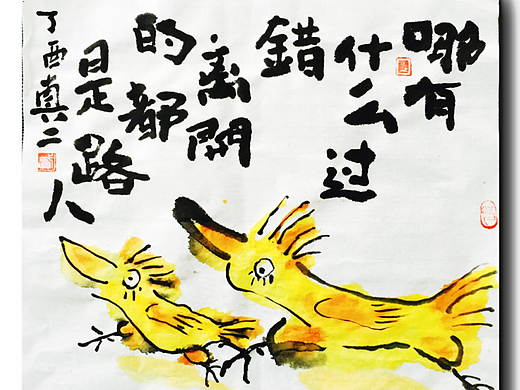 哪有
什么过
错
离開
的都
是路
人
丁酉真二